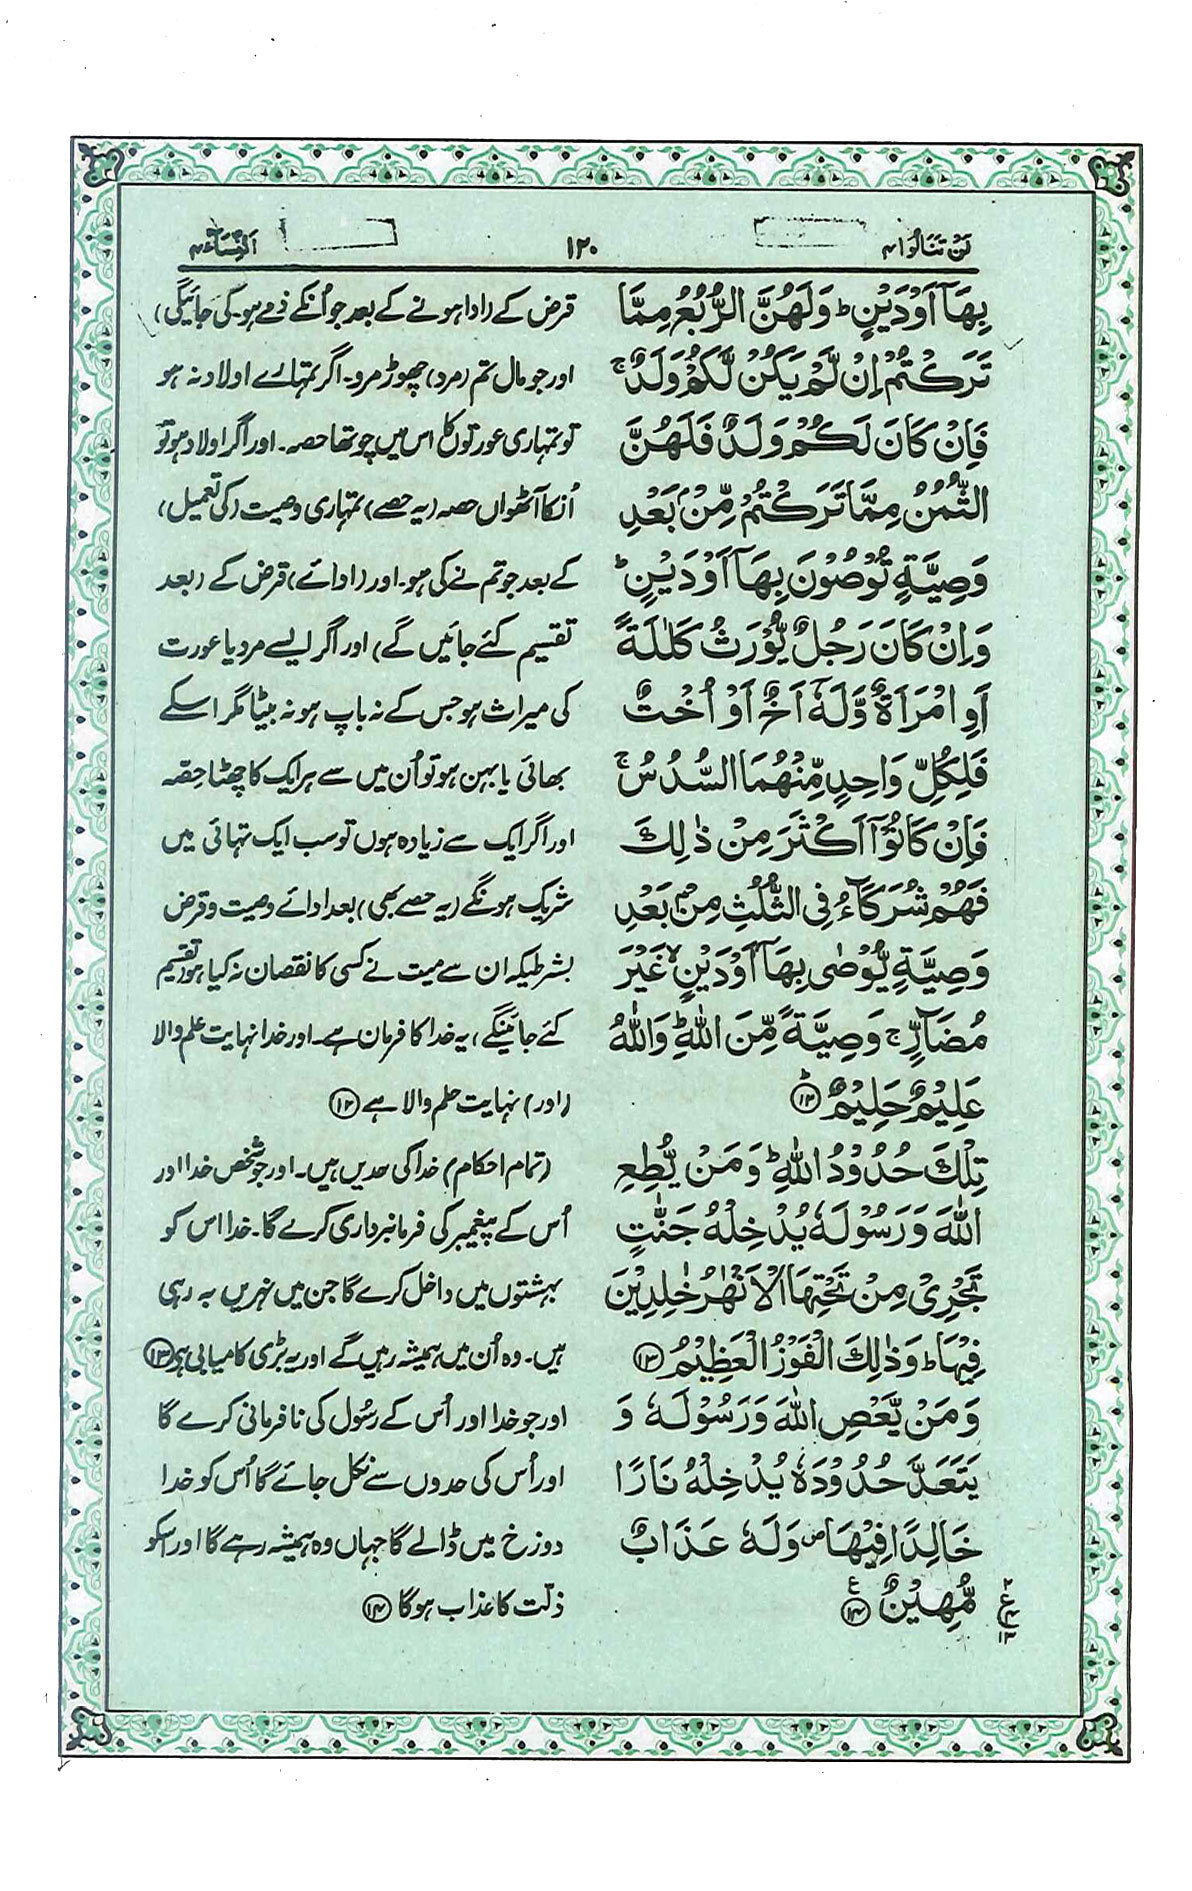 لن تنالوا ۴
۱۲۰
النساء ۴
بِهَآ اَوْ دَيْنٍ ؕ وَلَهُنَّ الرُّبُعُ مِمَّا
تَرَكْتُمْ اِنْ لَّمْ يَكُنْ لَّكُمْ وَلَدٌ ۚ
فَاِنْ كَانَ لَكُمْ وَلَدٌ فَلَهُنَّ
الثُّمُنُ مِمَّا تَرَكْتُمْ مِّنْۢ بَعْدِ
وَصِيَّةٍ تُوْصُوْنَ بِهَآ اَوْ دَيْنٍ ؕ
وَاِنْ كَانَ رَجُلٌ يُّوْرَثُ كَلٰلَةً
اَوِ امْرَاَةٌ وَّلَهٗٓ اَخٌ اَوْ اُخْتٌ
فَلِكُلِّ وَاحِدٍ مِّنْهُمَا السُّدُسُ ۚ
فَاِنْ كَانُوْٓا اَكْثَرَ مِنْ ذٰلِكَ
فَهُمْ شُرَكَآءُ فِى الثُّلُثِ مِنْۢ بَعْدِ
وَصِيَّةٍ يُّوْصٰى بِهَآ اَوْ دَيْنٍ ۙ غَيْرَ
مُضَآرٍّ ۚ وَصِيَّةً مِّنَ اللّٰهِ ؕ وَاللّٰهُ
عَلِيْمٌ حَلِيْمٌ ؕ ۱۲
تِلْكَ حُدُوْدُ اللّٰهِ ؕ وَمَنْ يُّطِعِ
اللّٰهَ وَرَسُوْلَهٗ يُدْخِلْهُ جَنّٰتٍ
تَجْرِىْ مِنْ تَحْتِهَا الْاَنْهٰرُ خٰلِدِيْنَ
فِيْهَا ؕ وَذٰلِكَ الْفَوْزُ الْعَظِيْمُ ۱۳
وَمَنْ يَّعْصِ اللّٰهَ وَرَسُوْلَهٗ وَ
يَتَعَدَّ حُدُوْدَهٗ يُدْخِلْهُ نَارًا
خَالِدًا فِيْهَا ۪ وَلَهٗ عَذَابٌ
مُّهِيْنٌ ۱۴ ع
قرض کے (ادا ہونے کے بعد جو اُنکے ذمے ہو۔ کی جائیگی)
اور جو مال تم (مرد) چھوڑ مرو۔ اگر تمہارے اولاد نہ ہو
تو تمہاری عورتوں کا اس میں چوتھا حصہ۔ اور اگر اولاد ہو تو
اُنکا آٹھواں حصہ (یہ حصے) تمہاری وصیت (کی تعمیل)
کے بعد جو تم نے کی ہو۔ اور (ادائے) قرض کے (بعد
تقسیم کئے جائیں گے) اور اگر ایسے مرد یا عورت
کی میراث ہو جس کے نہ باپ ہو نہ بیٹا مگر اسکے
بھائی یا بہن ہو تو اُن میں سے ہر ایک کا چھٹا حصّہ
اور اگر ایک سے زیادہ ہوں تو سب ایک تہائی میں
شریک ہونگے (یہ حصے بھی) بعد ادائے وصیت و قرض
بشرطیکہ ان سے میت نے کسی کا نقصان نہ کیا ہو (تقسیم
کئے جائینگے) یہ خدا کا فرمان ہے۔ اور خدا نہایت علم والا
(اور) نہایت حلم والا ہے ۱۲
(تمام احکام) خدا کی حدیں ہیں۔ اور جو شخص خدا اور
اُس کے پیغمبر کی فرمانبرداری کرے گا۔ خدا اس کو
بہشتوں میں داخل کرے گا جن میں نہریں بہ رہی
ہیں۔ وہ اُن میں ہمیشہ رہیں گے اور یہ بڑی کامیابی ہے ۱۳
اور جو خدا اور اُس کے رسُول کی نافرمانی کرے گا
اور اُس کی حدوں سے نکل جائے گا اُس کو خدا
دوزخ میں ڈالے گا جہاں وہ ہمیشہ رہے گا اور اسکو
ذلّت کا عذاب ہوگا ۱۴